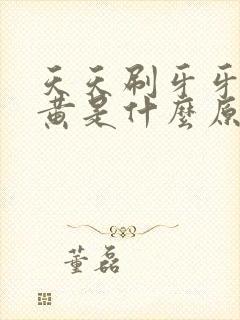 天天刷牙牙
黄是什麼原
董磊